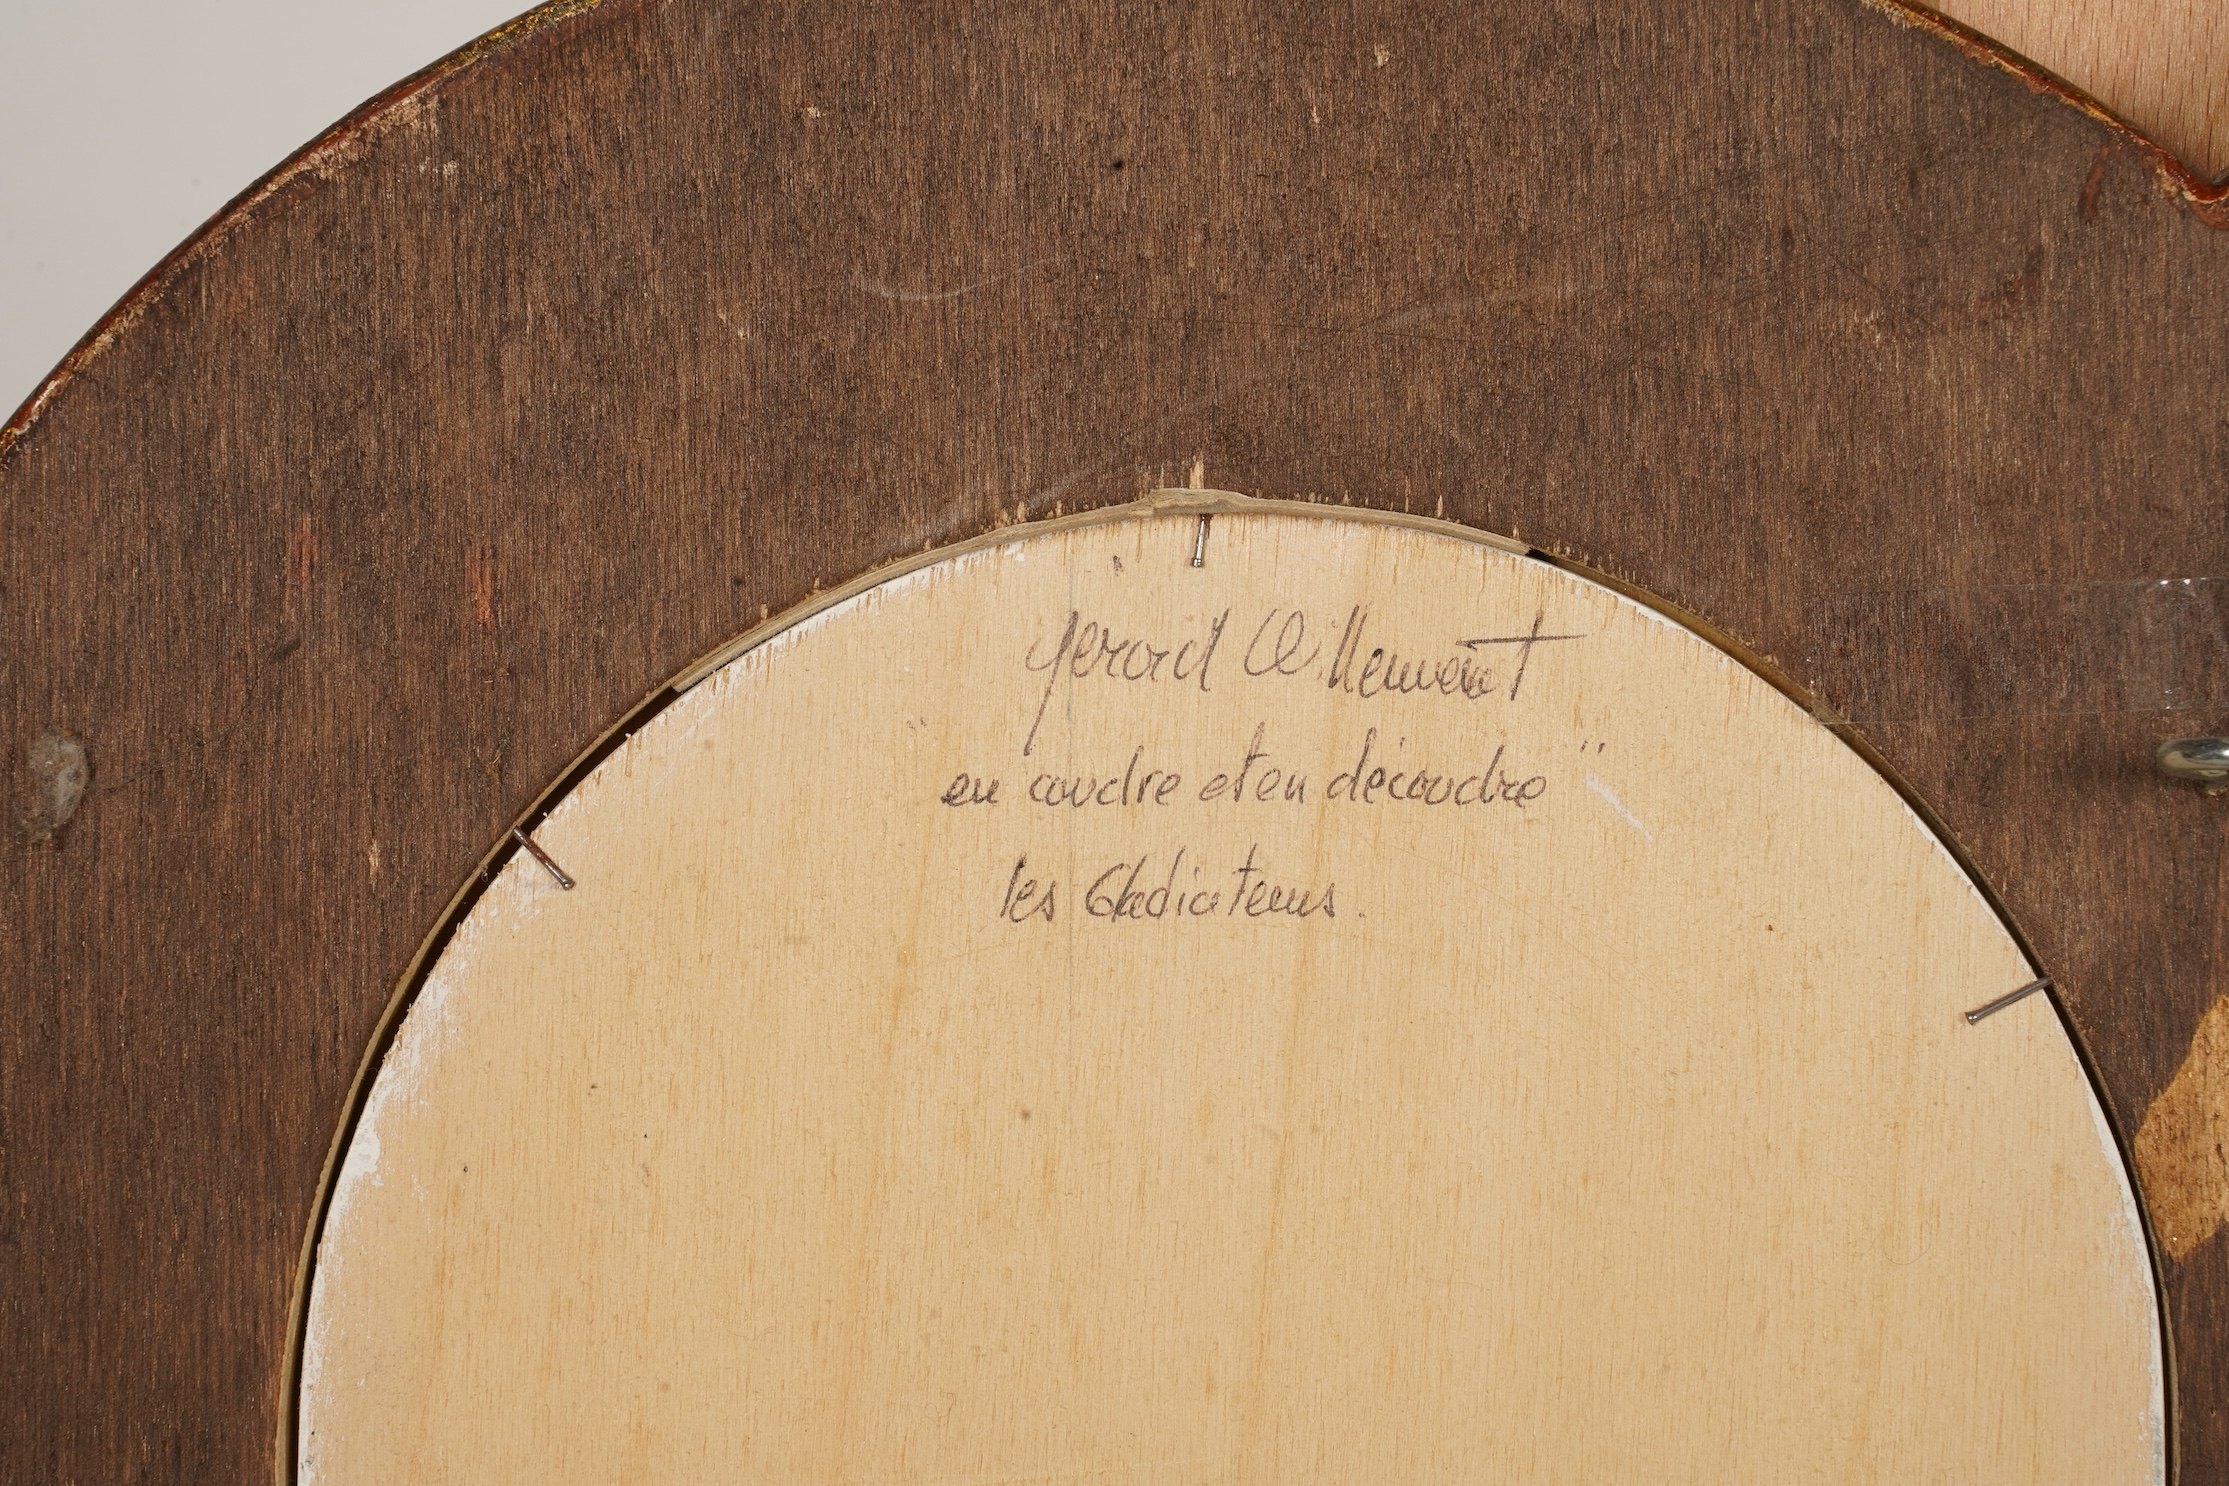 Gérard Willemenot
" en coudre et en découdre "
les Gladiateurs.